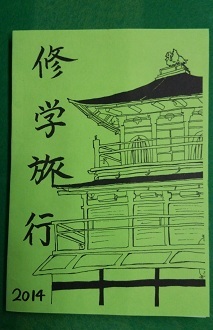 修学旅行
2014